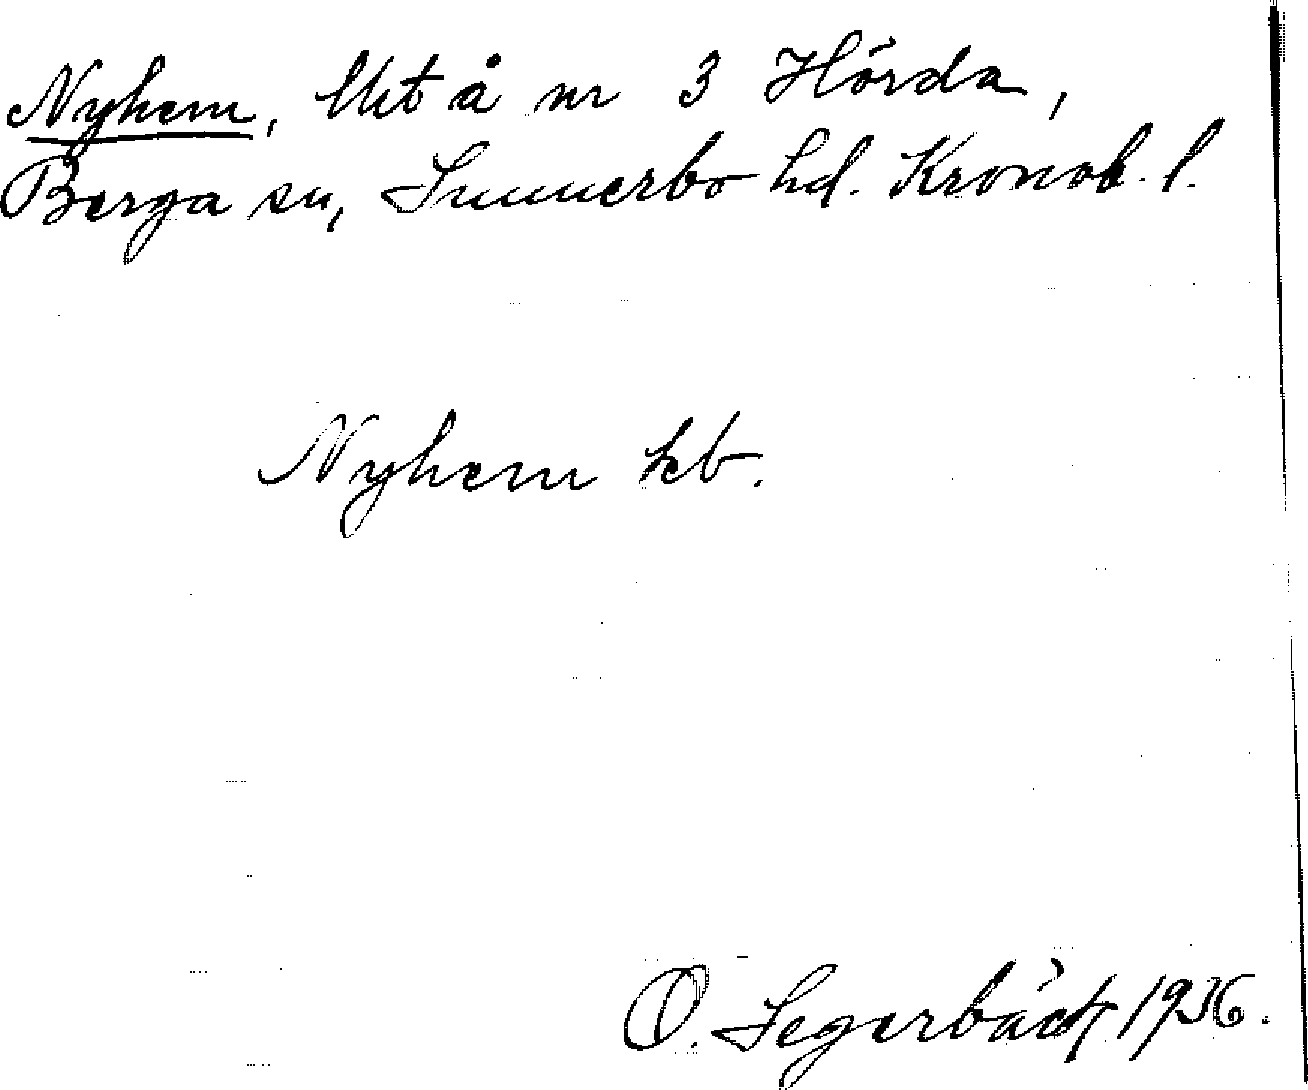 Nyhem, lht å nr 3 Hörda,
Berga sn, Sunnerbo hd. Kronob. l.
Nyhem kb.
O. Segerbäck 1936.